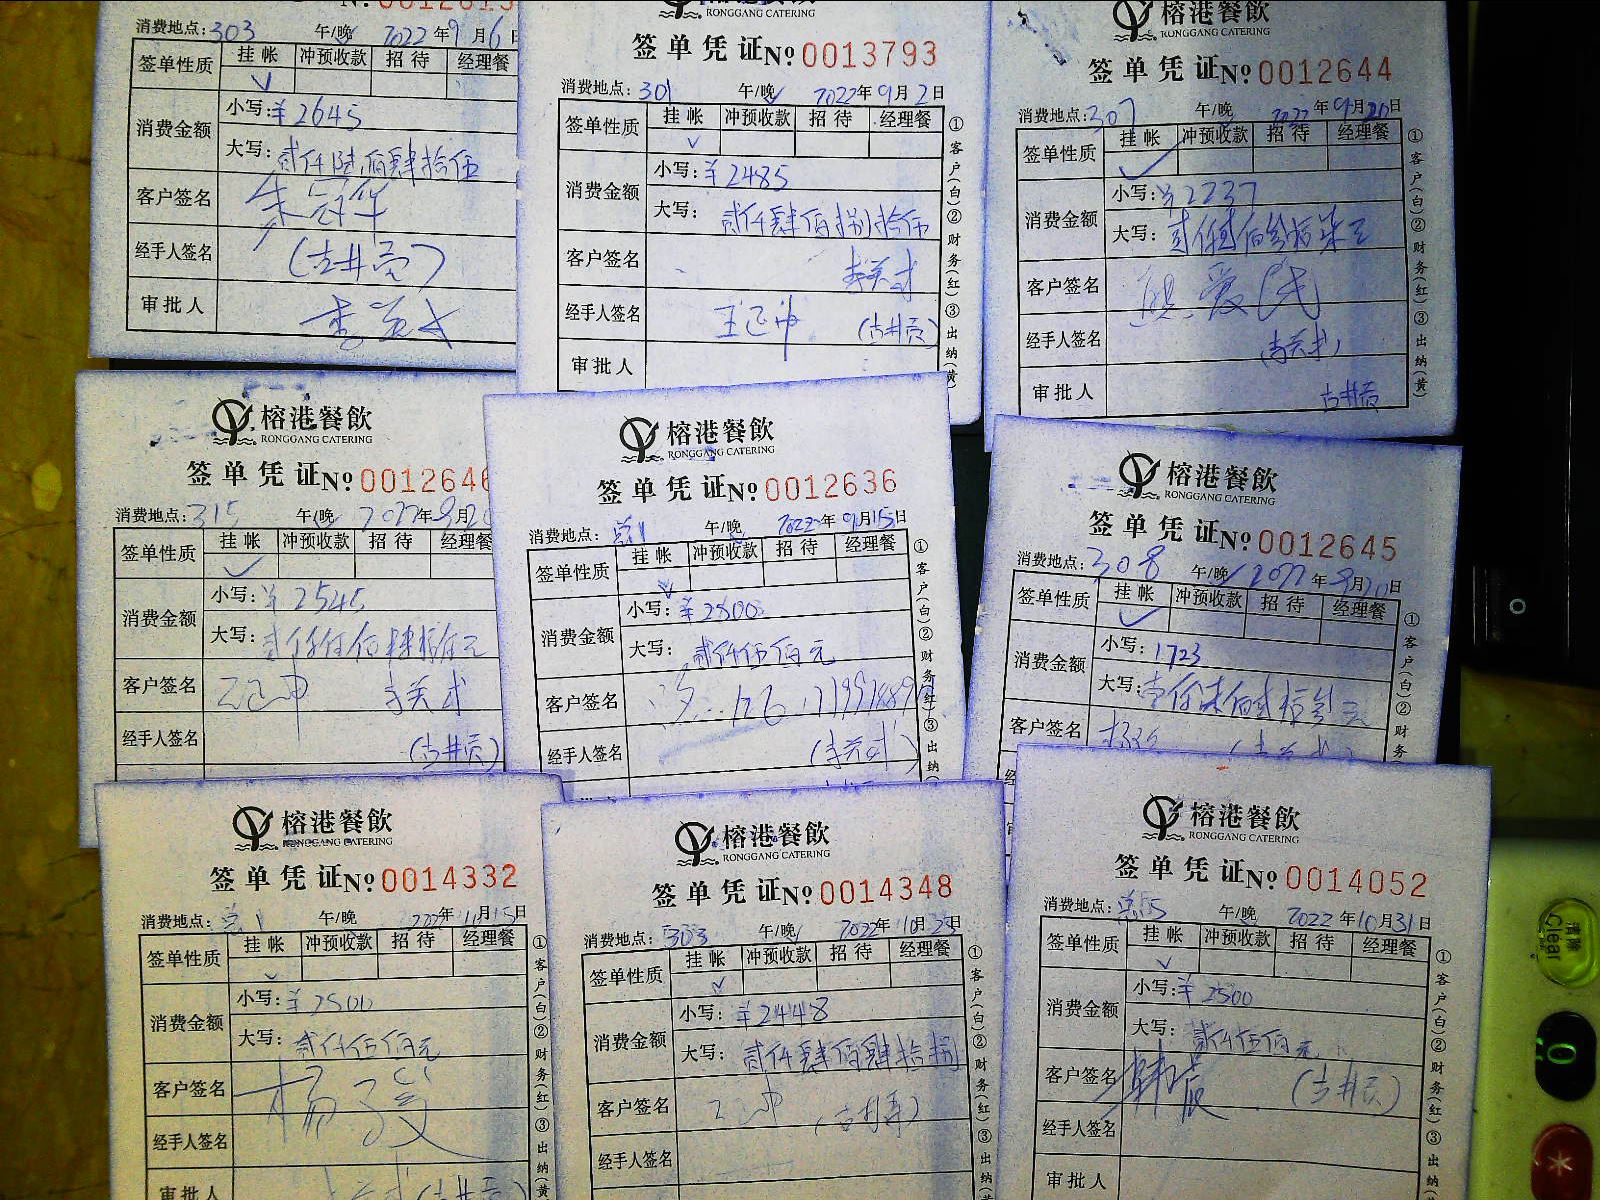 消费地点: 303 午/晚 2022年9月6日
签单性质 挂帐 冲预收款 招待 经理餐
消费金额 小写:¥2645
大写: 贰仟陆佰肆拾伍
客户签名 朱冠华
经手人签名 (古井贡)
审批人
榕港餐飲
RONGGANG CATERING
签单凭证 No 0013793
消费地点: 301 午/晚 2022年9月2日
签单性质 挂帐 冲预收款 招待 经理餐
消费金额 小写:¥2485
大写: 贰仟肆佰捌拾伍
客户签名
经手人签名 (古井贡)
审批人
①客户(白)②财务(红)③出纳(黄
榕港餐飲
RONGGANG CATERING
签单凭证 No 0012644
消费地点: 307 午/晚 2022年9月20日
签单性质 挂帐 冲预收款 招待 经理餐
消费金额 小写:¥2237
大写: 贰仟贰佰叁拾柒元
客户签名 熊爱民
经手人签名
审批人 古井贡
①客户(白)②财务(红)③出纳(黄)
榕港餐飲
RONGGANG CATERING
签单凭证 No 0012646
消费地点: 315 午/晚 2022年9月20
签单性质 挂帐 冲预收款 招待 经理餐
消费金额 小写:¥2545
大写: 贰仟伍佰肆拾伍元
客户签名
经手人签名 (古井贡)
榕港餐飲
RONGGANG CATERING
签单凭证 No 0012636
消费地点: 午/晚 2022年9月15日
签单性质 挂帐 冲预收款 招待 经理餐
消费金额 小写:¥2500
大写: 贰仟伍佰元
客户签名
经手人签名
①客户(白)②财务(红)③出纳(
榕港餐飲
RONGGANG CATERING
签单凭证 No 0012645
消费地点: 308 午/晚 2022年9月20日
签单性质 挂帐 冲预收款 招待 经理餐
消费金额 小写:1723
大写: 壹仟柒佰贰拾叁元
客户签名
①客户(白)②财务
榕港餐飲
RONGGANG CATERING
签单凭证 No 0014332
消费地点: 午/晚 2022年11月15日
签单性质 挂帐 冲预收款 招待 经理餐
消费金额 小写:¥2500
大写: 贰仟伍佰元
客户签名
经手人签名
审批人 (古井贡)
①客户(白)②财务(红)③出纳(黄
榕港餐飲
RONGGANG CATERING
签单凭证 No 0014348
消费地点: 303 午/晚 2022年10月25日
签单性质 挂帐 冲预收款 招待 经理餐
消费金额 小写:¥2448
大写: 贰仟肆佰肆拾捌
客户签名
经手人签名
①客户(白)②财务(红)③出纳
榕港餐飲
RONGGANG CATERING
签单凭证 No 0014052
消费地点: 午/晚 2022年10月31日
签单性质 挂帐 冲预收款 招待 经理餐
消费金额 小写:¥2500
大写: 贰仟伍佰元
客户签名 韩宸 (古井贡)
经手人签名
审批人
①客户(白)②财务(红)③出纳(黄
清除
Clear
0
*